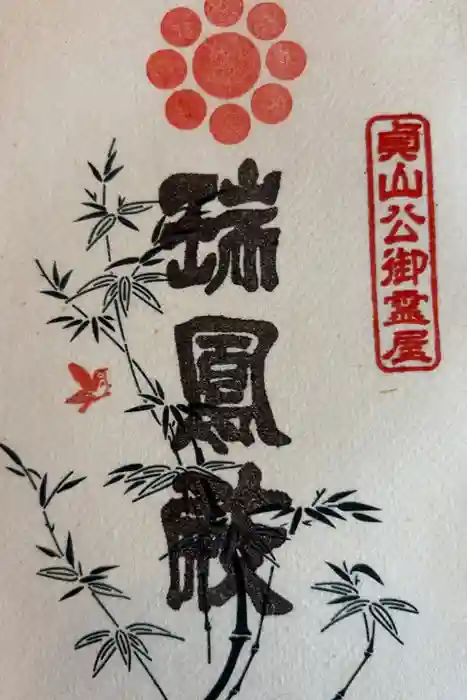 貞山公御霊屋
瑞鳳殿